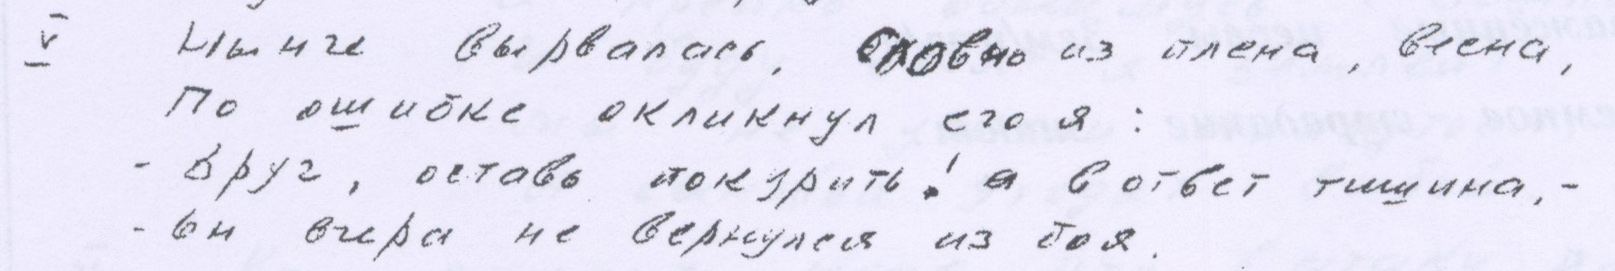 V Нынче вырвалась, словно из плена, весна,
По ошибке окликнул его я:
- Друг, оставь покурить! а в ответ тишина, -
- Он вчера не вернулся из боя.